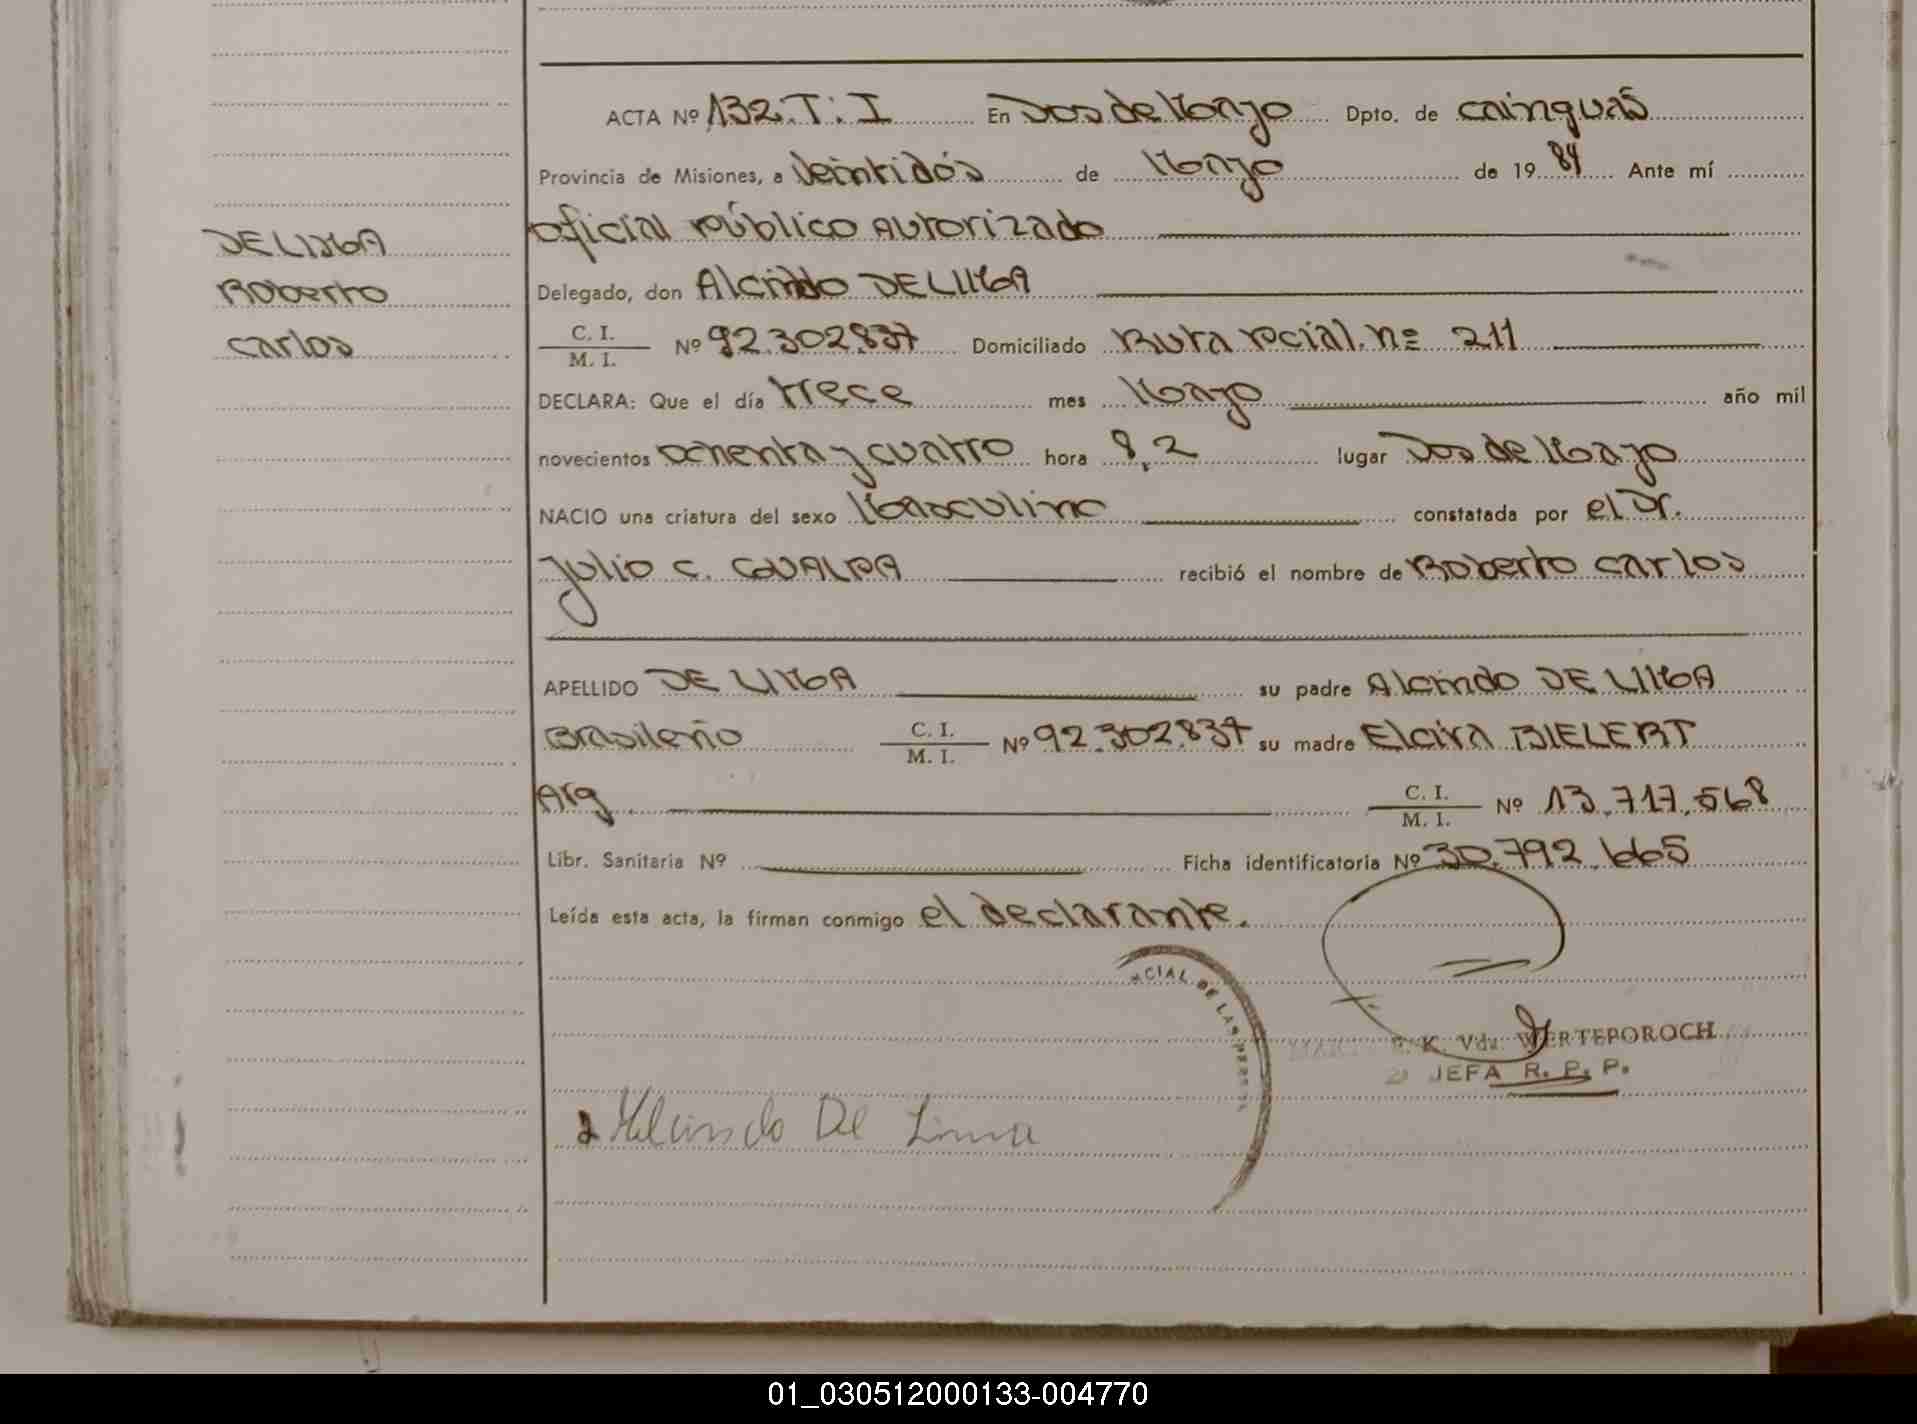 ACTA Nº 132. T: I En Dos de Mayo Dpto. de Cainguás
Provincia de Misiones, a Veintidós de Mayo de 19 84 Ante mí
Oficial Público Autorizado
DE LIMA
Roberto
Carlos
Delegado, don Alcindo DE LIMA
C. I.
M. I. Nº 92.302.837 Domiciliado Ruta Pcial. nº 211
DECLARA: Que el día trece mes Mayo año mil
novecientos ochenta y cuatro hora 8,2 lugar Dos de Mayo
NACIO una criatura del sexo Masculino constatada por el Dr.
Julio C. GUALPA recibió el nombre de Roberto Carlos
APELLIDO DE LIMA su padre Alcindo DE LIMA
Brasileño C. I.
M. I. Nº 92.302.837 su madre Elcira BIELERT
Arg. C. I.
M. I. Nº 13.717.568
Libr. Sanitaria Nº Ficha identificatoria Nº 30.792.665
Leída esta acta, la firman conmigo el declarante.
CIAL DE LAS PERSON
K. Vda. WERTEPOROCH
JEFA R. P. P.
Alcindo De Lima
01_030512000133-004770